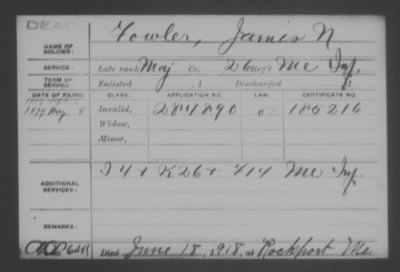 DEAD
Fowler, James N
NAME OF
SOLDIER:
SERVICE: Late rank, Maj Co. 26 Reg't Me Inf.
TERM OF
SERVICE: Enlisted , 1 Discharged , 1
DATE OF FILING. CLASS. APPLICATION NO. LAW. CERTIFICATE NO.
1879 May 8 Invalid, 284890 185216
Widow,
Minor,
ADDITIONAL
SERVICES: I 4 + K 26 + F 14 Me Inf.
REMARKS:
Died June 18, 1918, at Rockport Me